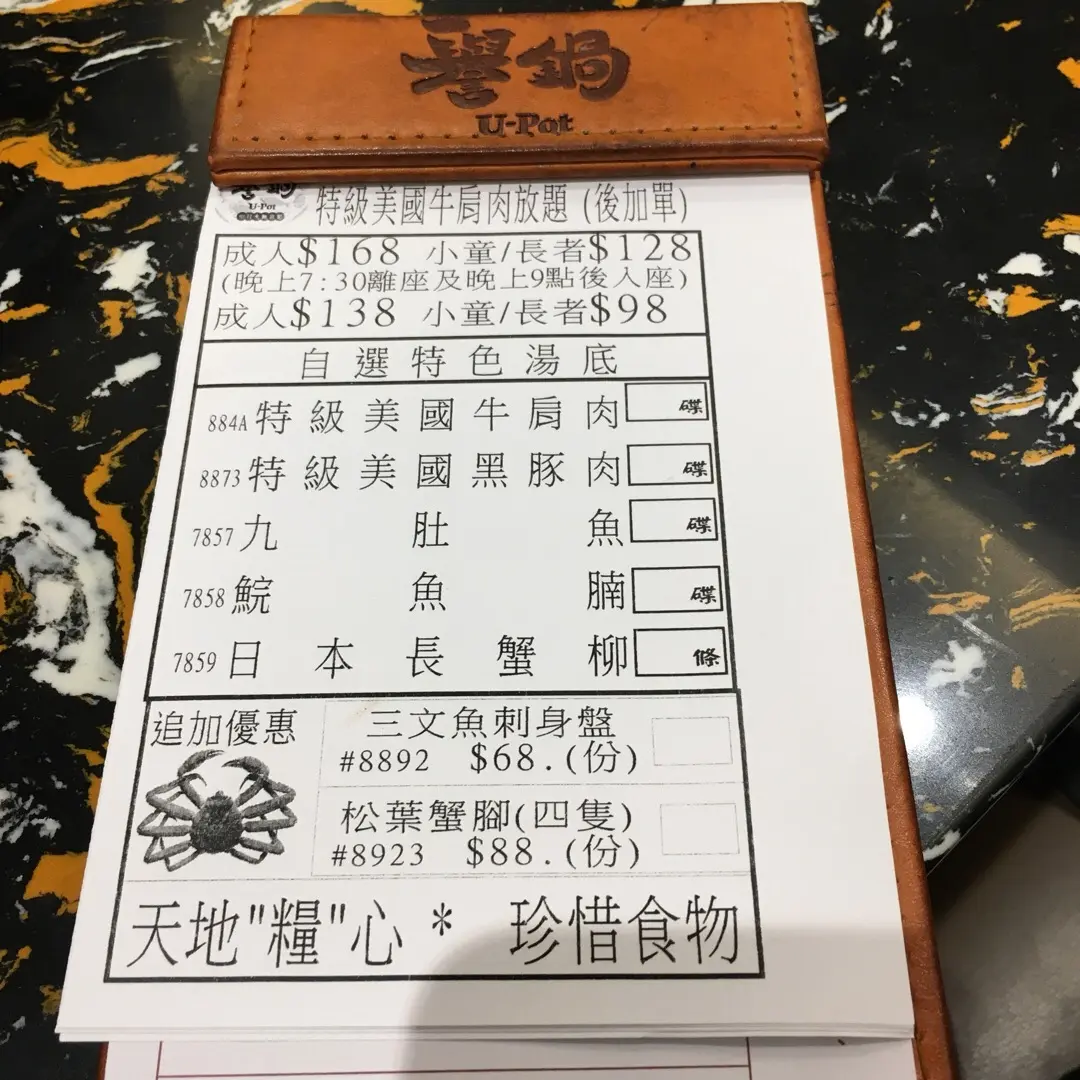 譽鍋
U-Pot
U-Pot
特級美國牛肩肉放題 (後加單)
成人$168 小童/長者$128
(晚上7:30離座及晚上9點後入座)
成人$138 小童/長者$98
自選特色湯底
884A 特級美國牛肩肉 碟
8873 特級美國黑豚肉 碟
7857 九肚魚 碟
7858 鯇魚腩 碟
7859 日本長蟹柳 條
追加優惠
三文魚刺身盤
#8892 $68.(份)
松葉蟹腳(四隻)
#8923 $88.(份)
天地"糧"心 * 珍惜食物